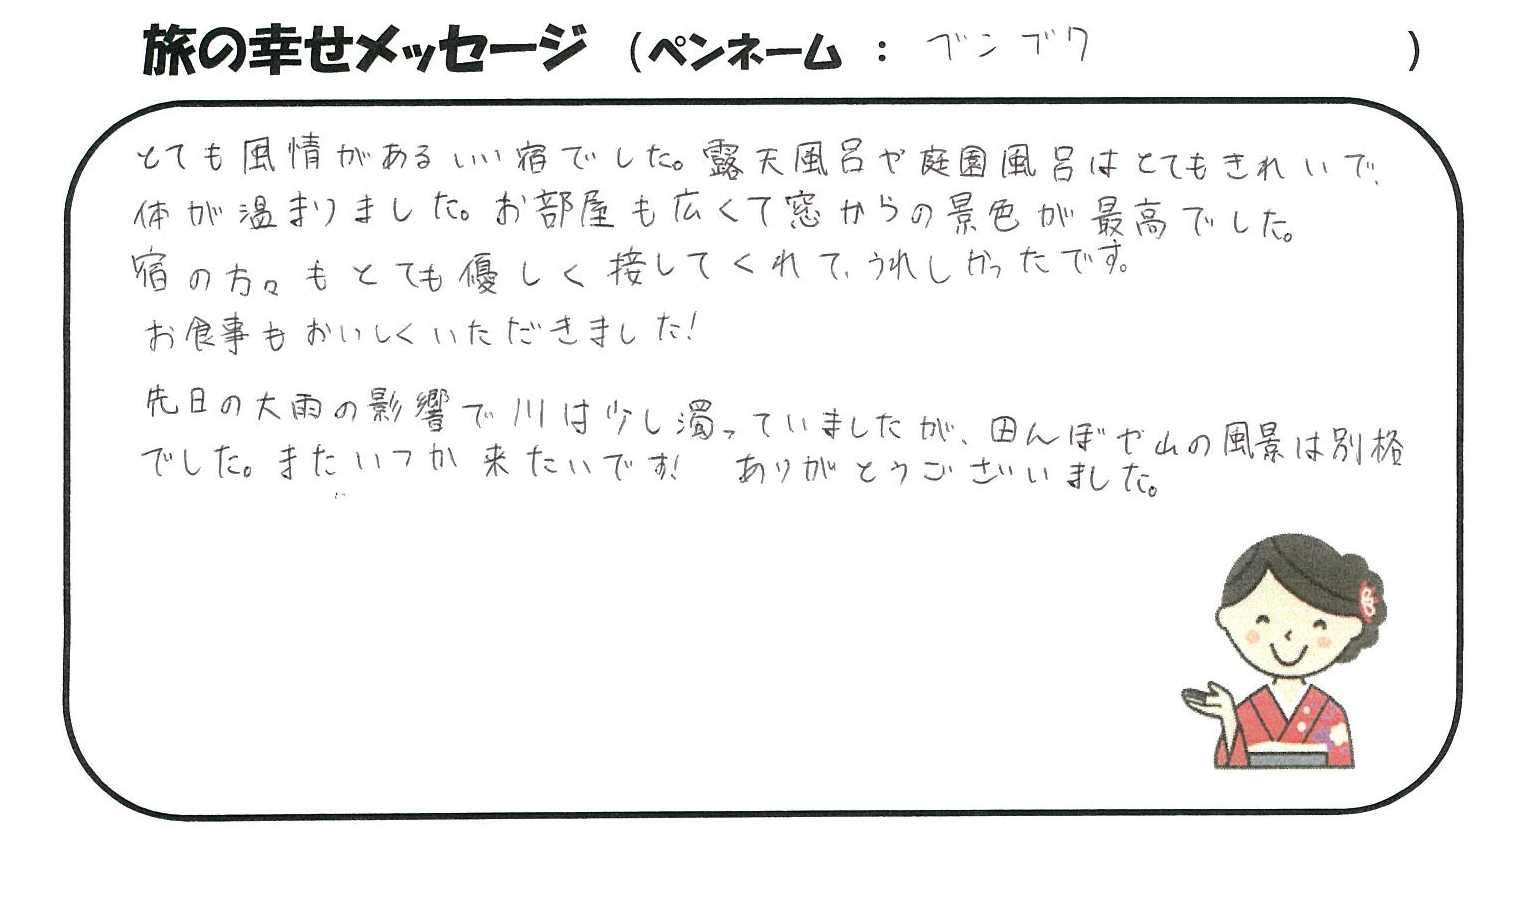 旅の幸せメッセージ （ペンネーム ： ブンブク ）
とても風情があるいい宿でした。露天風呂や庭園風呂はとてもきれいで、
体が温まりました。お部屋も広くて窓からの景色が最高でした。
宿の方々もとても優しく接してくれて、うれしかったです。
お食事もおいしくいただきました！
先日の大雨の影響で川は少し濁っていましたが、田んぼや山の風景は別格
でした。またいつか来たいです！ ありがとうございました。